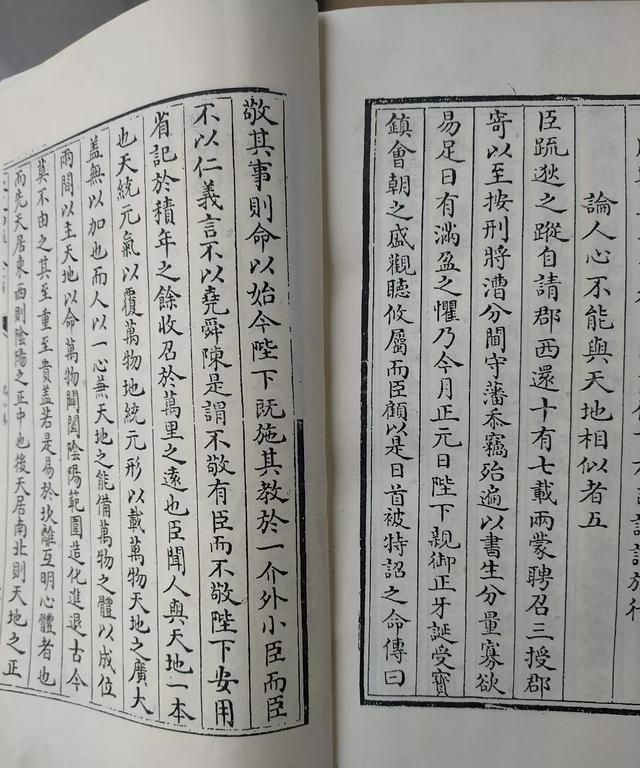 論人心不能與天地相似者五
臣疏狄之蹤自請郡西還十有七載兩蒙聘召三授郡
寄以至按刑將漕分閫守藩忝竊殆遍以書生分量寡欲
易足日有滿盈之懼乃今月正元日陛下親御正牙誕受寶
鎮會朝之盛觀聽攸屬而臣顧以是日首被特詔之命傳曰
敬其事則命以始今陛下既施其教於一介外小臣而臣
不以仁義言不以堯舜陳是謂不敬有臣而不敬陛下安用
省記於積年之餘收召於萬里之遠也臣聞人與天地一本
也天統元氣以覆萬物地統元形以載萬物天地之廣大
蓋無以加也而人以一心兼天地之能備萬物之體以成位
兩間以主天地以命萬物闔闢陰陽範圍造化進退古今
莫不由之其至重至貴蓋若是易於坎離互明心體者也
而先天居東西則陰陽之正中也後天居南北則天地之正